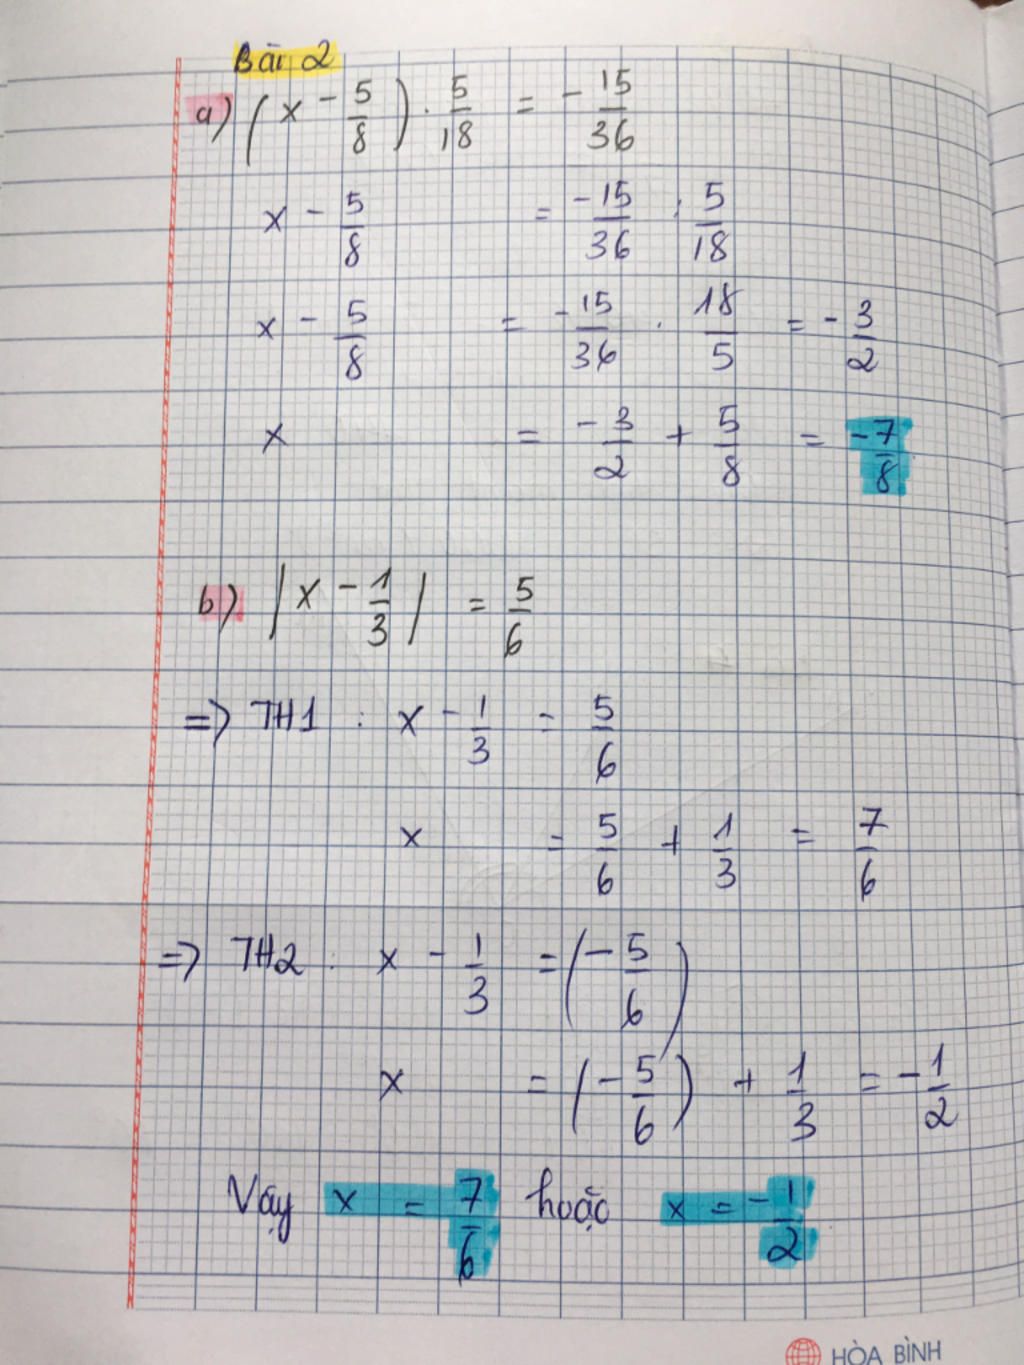 Bài 2
a) (x - 5/8) . 5/18 = - 15/36
x - 5/8 = -15/36 : 5/18
x - 5/8 = -15/36 . 18/5 = - 3/2
x = -3/2 + 5/8 = -7/8
b) |x - 1/3| = 5/6
=> TH1 : x - 1/3 = 5/6
x = 5/6 + 1/3 = 7/6
=> TH2 : x - 1/3 = (- 5/6)
x = (- 5/6) + 1/3 = - 1/2
Vậy x = 7/6 hoặc x = - 1/2
HÒA BÌNH